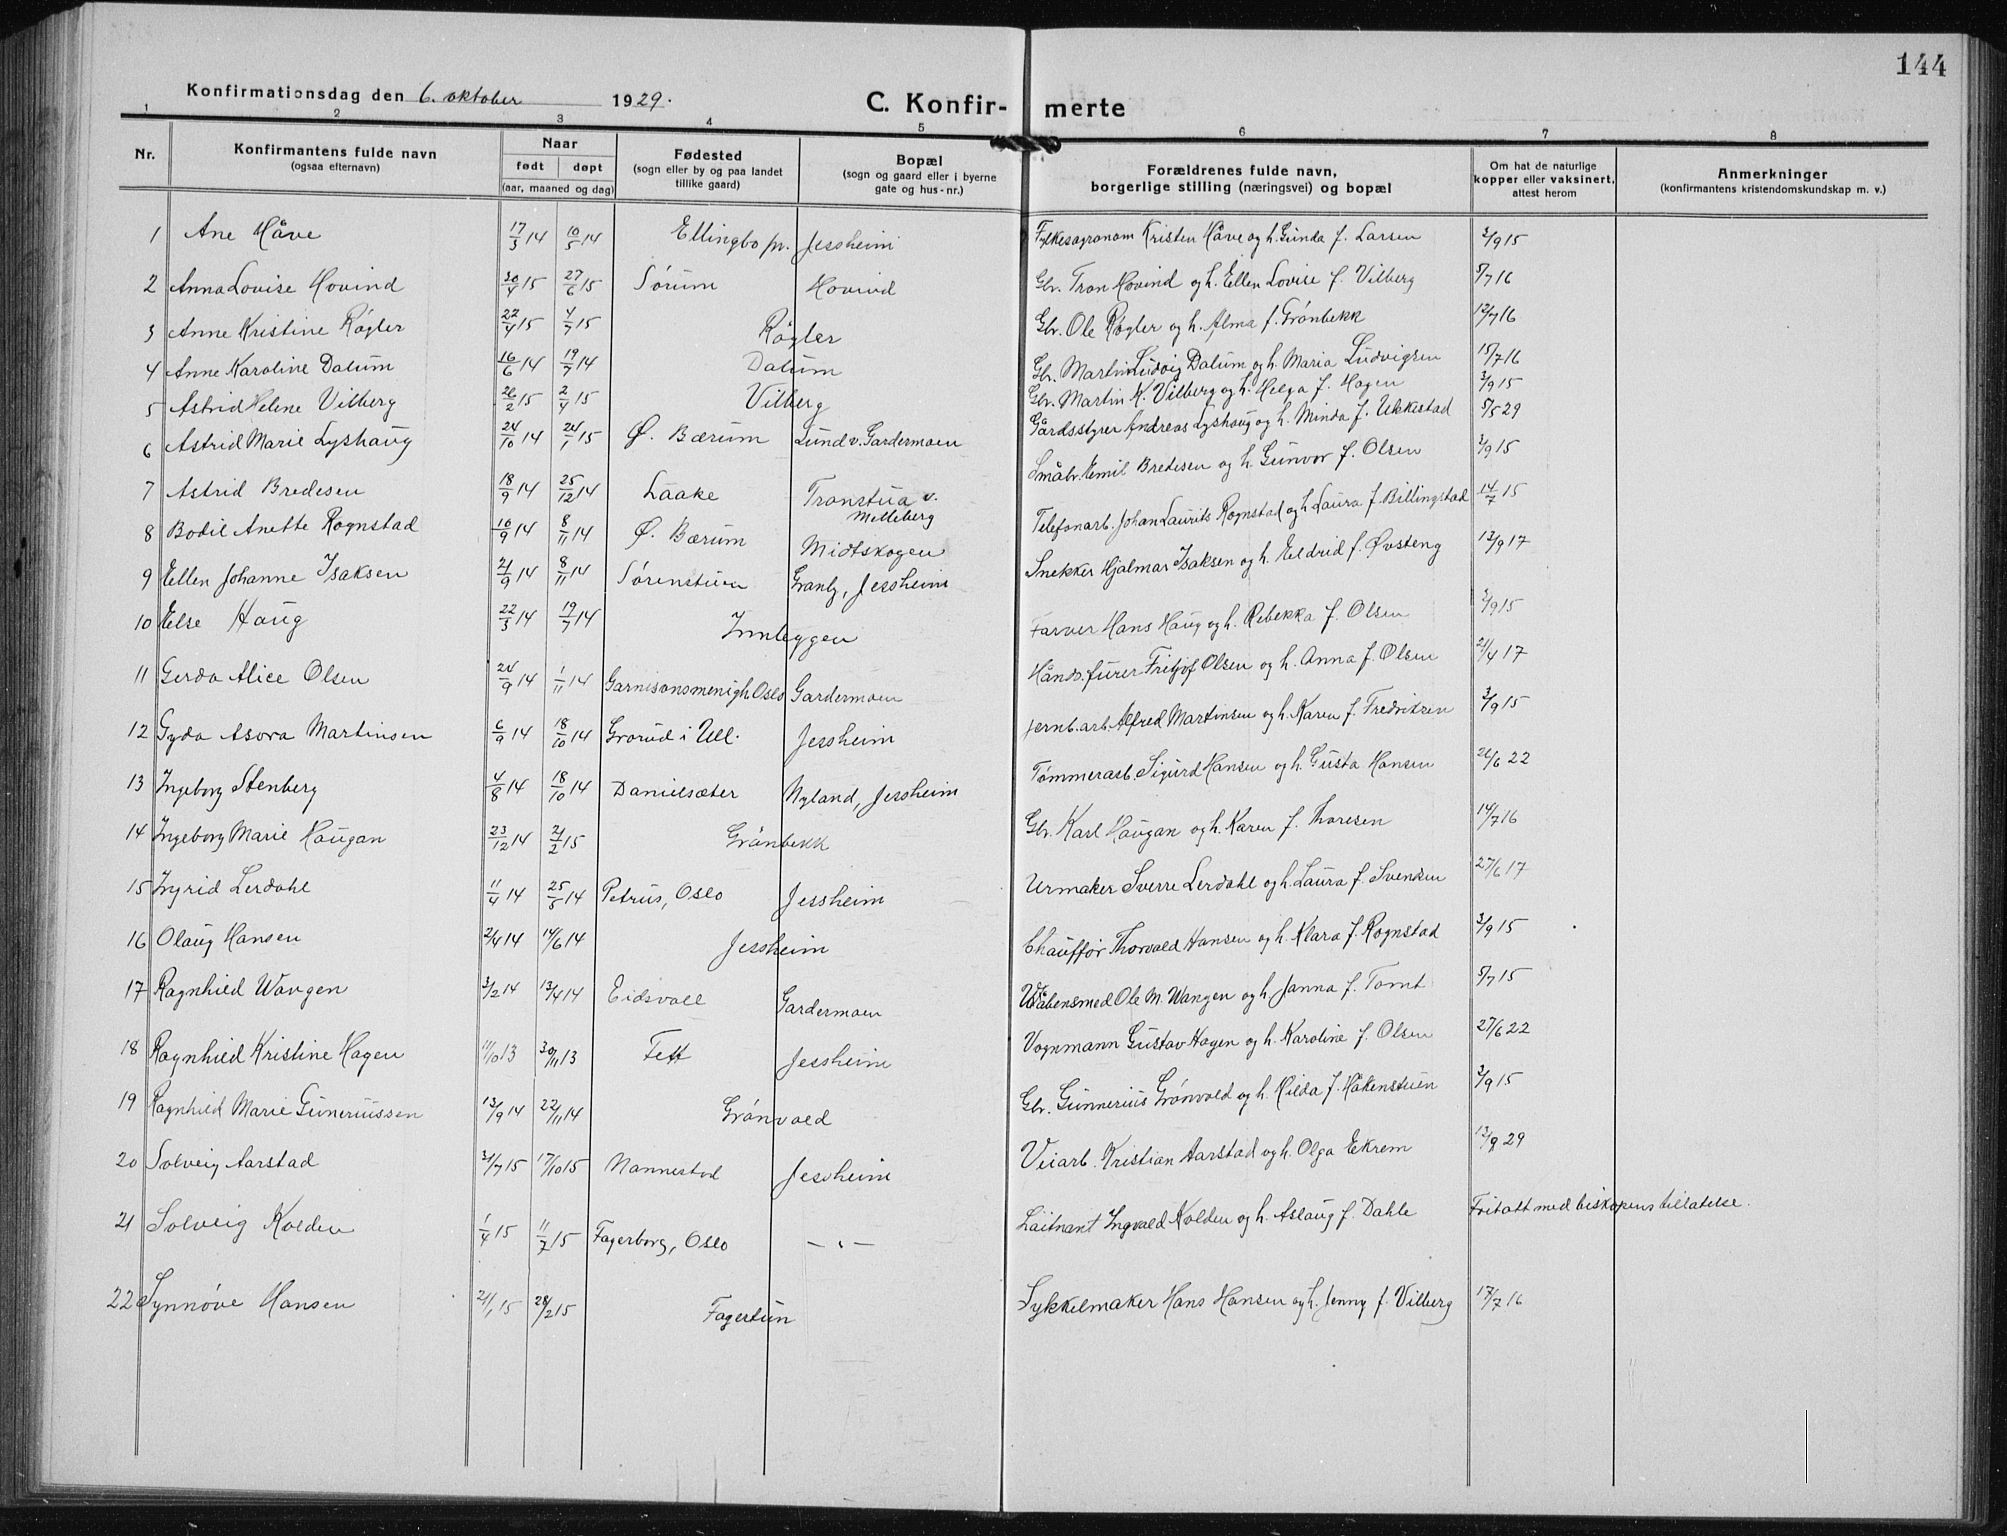 144
Konfirmationsdag den 6. oktober 1929.
C. Konfir- merte
1 2 3 4 5 6 7 8
Nr. Konfirmantens fulde navn (ogsaa efternavn) Naar født døpt (aar, maaned og dag) Fødested (sogn eller by og paa landet tillike gaard) Bopæl (sogn og gaard eller i byerne gate og hus-nr.) Forældrenes fulde navn, borgerlige stilling (næringsvei) og bopæl Om hat de naturlige kopper eller vaksinert, attest herom Anmerkninger (konfirmantens kristendomskundskap m. v.)
1 Ane Håve 17/3 14 10/5 14 Ellingbo pr. Jessheim Fylkesagronom Kristen Håve og h. Gunda f. Larsen 3/9 15
2 Anna Lovise Hovind 30/4 15 27/6 15 Sørum Hovind Gbr. Tron Hovind og h. Ellen Lovise f. Vilberg 5/7 16
3 Anne Kristine Røgler 22/4 15 4/7 15 Røgler Gbr. Ole Røgler og h. Alma f. Grønbekk 12/7 16
4 Anne Karoline Dalum 16/6 14 19/7 14 Dalum Gbr. Martin Ludvig Dalum og h. Maria Ludvigsen 15/7 16
5 Astrid Helene Vilberg 26/2 15 2/4 15 Vilberg Gbr. Martin K. Vilberg og h. Helga f. Hagen 3/9 15
6 Astrid Marie Lyshaug 24/10 14 24/1 15 Ø. Bærum Lund v. Gardermoen Gårdsstyrer Andreas Lyshaug og h. Minda f. Ukkestad 5/5 29
7 Astrid Bredesen 18/9 14 25/12 14 Laake Tronstua v. Melleberg Småbr. Emil Bredesen og h. Gunvor f. Olsen 3/9 15
8 Bodil Anette Rognstad 10/9 14 8/11 14 Ø. Bærum Midtskogen Telefonarb. Johan Laurits Rognstad og h. Laura f. Billingstad 14/7 15
9 Ellen Johanne Isaksen 21/9 14 8/11 14 Sørenstuen Granly, Jessheim Snekker Hjalmar Isaksen og h. Eldrid f. Øvsteng 13/9 17
10 Else Haug 22/3 14 19/7 14 Innleggen Farver Hans Haug og h. Rebekka f. Olsen 3/9 15
11 Gerda Alice Olsen 24/9 14 1/11 14 Garnisonsmenigh. Oslo Gardermoen Håndv.furer Fritjof Olsen og h. Anna f. Olsen 21/4 17
12 Gyda Asora Martinsen 6/9 14 18/10 14 Grorud i Ull. Jessheim Jernb.arb. Alfred Martinsen og h. Karen f. Fredriksen 3/9 15
13 Ingeborg Stenberg 4/8 14 18/10 14 Danielsæter Nyland, Jessheim Tømmerarb. Sigurd Hansen og h. Gusta Hansen 26/6 22
14 Ingeborg Marie Haugan 23/12 14 21/2 15 Grønbekk Gbr. Karl Haugan og h. Karen f. Thoresen 14/7 16
15 Ingrid Lerdahl 11/4 14 25/5 14 Petrus, Oslo Jessheim Urmaker Sverre Lerdahl og h. Laura f. Svendsen 27/6 17
16 Olaug Hansen 2/4 14 14/6 14 Jessheim Chauffør Thorvald Hansen og h. Klara f. Rognstad 3/9 15
17 Ragnhild Wangen 3/2 14 13/4 14 Eidsvoll Gardermoen Våbensmed Ole M. Wangen og h. Janna f. Tomt 5/7 15
18 Ragnhild Kristine Hagen 11/10 13 30/11 13 Fett Jessheim Vognmann Gustav Hagen og h. Karoline f. Olsen 27/6 22
19 Ragnhild Marie Guneriussen 13/9 14 22/11 14 Grønvold Gbr. Gunnerius Grønvold og h. Hilda f. Håkenstuen 3/9 15
20 Solveig Aarstad 31/7 15 17/10 15 Nannestad Jessheim Veiarb. Kristian Aarstad og h. Olga Ekrem 13/9 29
21 Solveig Kolden 1/4 15 11/7 15 Fagerborg, Oslo — " — Løitnant Ingvald Kolden og h. Aslaug f. Dahle Fritatt med biskopens tillatelse.
22 Synnøve Hansen 21/1 15 28/2 15 Fagertun Sykkelmaker Hans Hansen og h. Jenny f. Vilberg 17/7 16